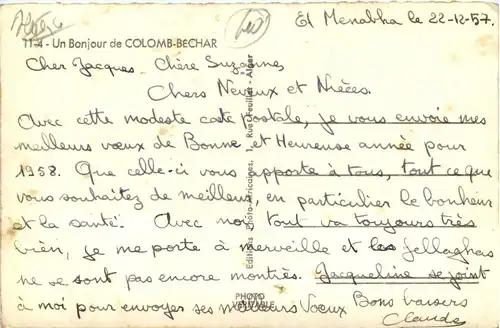 El Menabha le 22-12-57.
Algérie
11-4 - Un Bonjour de COLOMB-BECHAR
Cher Jacques - Chère Suzanne,
Chers Neveux et Nièces.
Avec cette modeste carte postale, je vous envoie mes
meilleurs vœux de Bonne et Heureuse année pour
1958. Que celle-ci vous apporte à tous, tout ce que
vous souhaitez de meilleur, en particulier le bonheur
et la santé. Avec moi tout va toujours très
bien, je me porte à merveille et les fellaghas
ne se sont pas encore montrés. Jacqueline se joint
à moi pour envoyer ses meilleurs Vœux
Bons baisers
Claude
Editions Photo-Africaines, 1, Rue Feuillet - Alger
PHOTO
VERITABLE